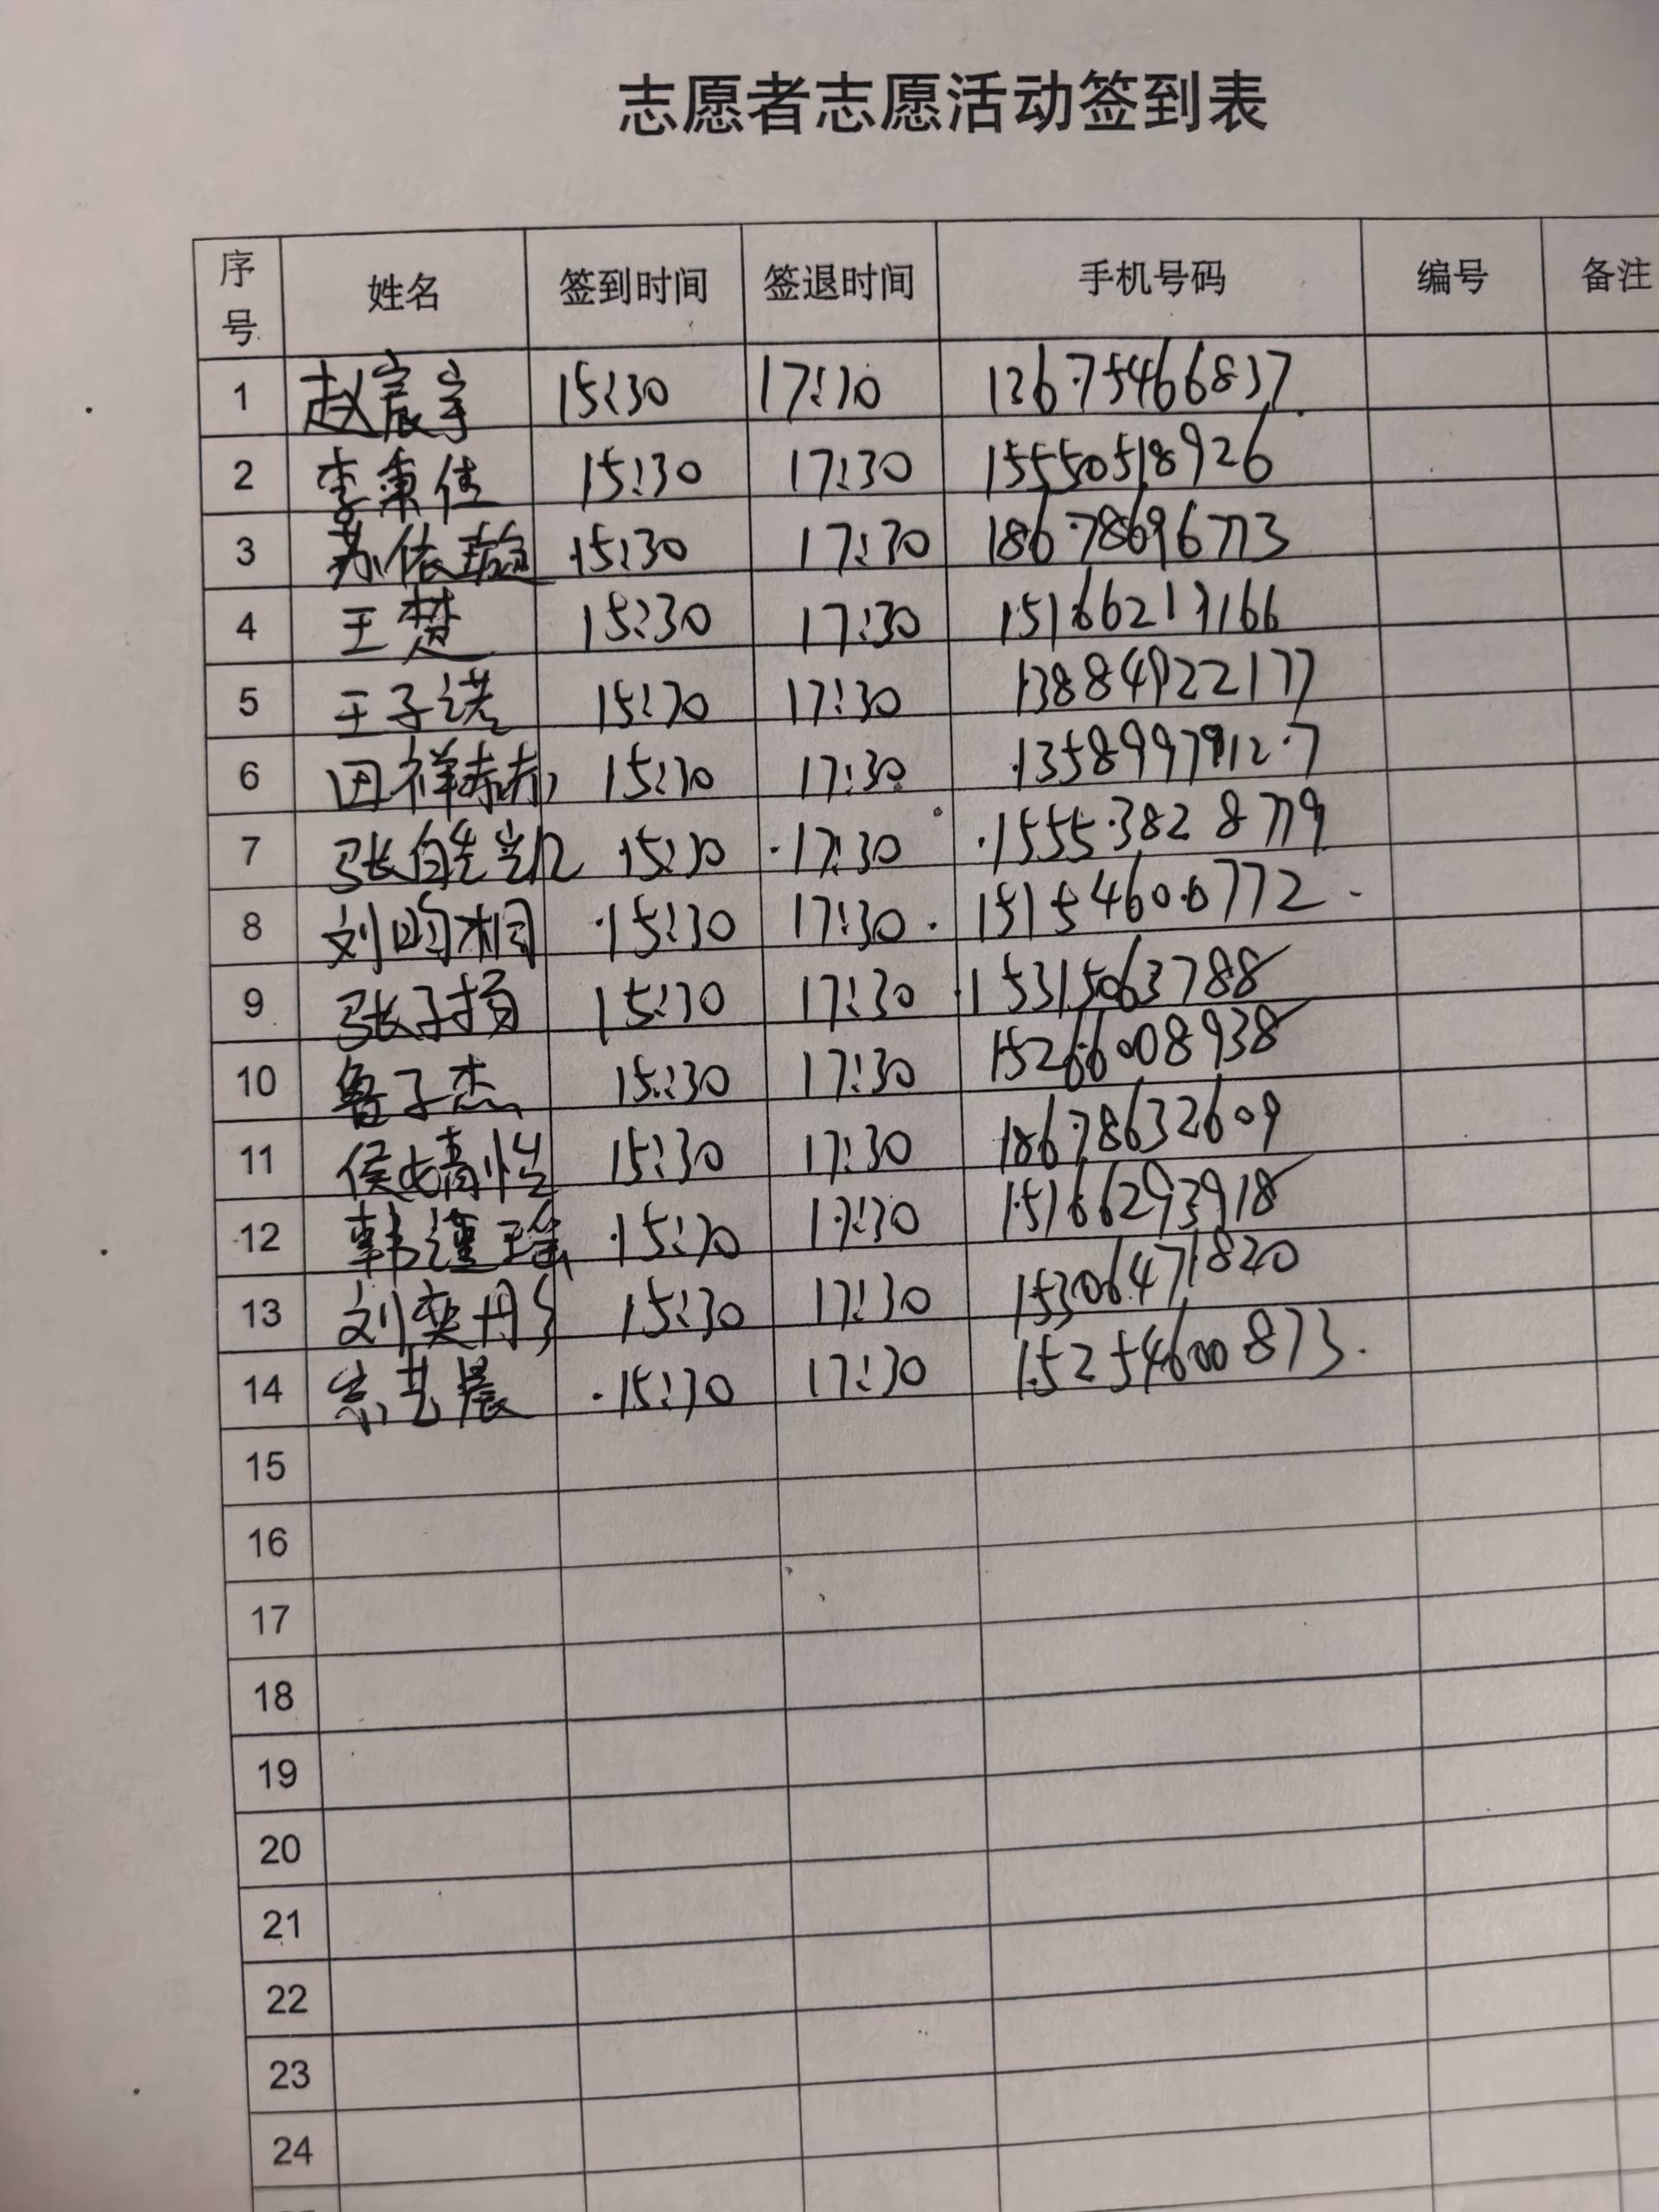 志愿者志愿活动签到表
序号 姓名 签到时间 签退时间 手机号码 编号 备注
1 赵宸宇 15:30 17:30 13675466837
2 李秉佳 15:30 17:30 15550518926
3 苏依璇 15:30 17:30 18678696773
4 王楚 15:30 17:30
5 王子诺 15:30 17:30 13884922177
6 田祥赫 15:30 17:30
7 张皓凯 15:30 17:30 15553828779
8 刘昀桐 15:30 17:30 15154600772
9 张子扬 15:30 17:30 15315063788
10 鲁子杰 15:30 17:30 15266008938
11 侯婧怡 15:30 17:30 18678632609
12 韩谨瑜 15:30 17:30 15166293918
13 刘奕彤 15:30 17:30 15306471820
14 宗艺晨 15:30 17:30 15254600873
15
16
17
18
19
20
21
22
23
24